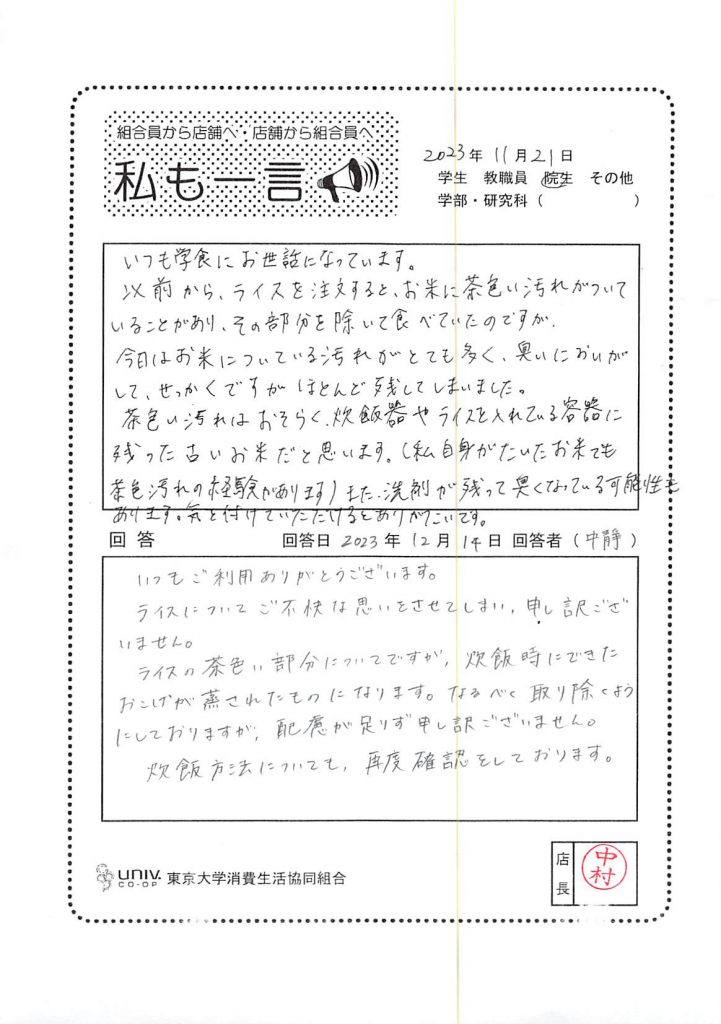 組合員から店舗へ・店舗から組合員へ
私も一言
2023年 11月21日
学生 教職員 院生 その他
学部・研究科( )
いつも学食にお世話になっています。
以前から、ライスを注文すると、お米に茶色い汚れがついて
いることがあり、その部分を除いて食べていたのですが、
今日はお米についている汚れがとても多く、臭いにおいが
して、せっかくですがほとんど残してしまいました。
茶色い汚れはおそらく、炊飯器やライスを入れている容器に
残った古いお米だと思います。(私自身がたいたお米でも
茶色汚れの経験があります)また、洗剤が残って臭くなっている可能性も
あります。気を付けていただけるとありがたいです。
回答 回答日 2023年 12月 14日 回答者(中静)
いつもご利用ありがとうございます。
ライスについてご不快な思いをさせてしまい、申し訳ござ
いません。
ライスの茶色い部分についてですが、炊飯時にできた
おこげが蒸されたものになります。なるべく取り除くよう
にしておりますが、配慮が足りず申し訳ございません。
炊飯方法についても、再度確認をしております。
UNIV.
CO-OP
東京大学消費生活協同組合
店長
中村